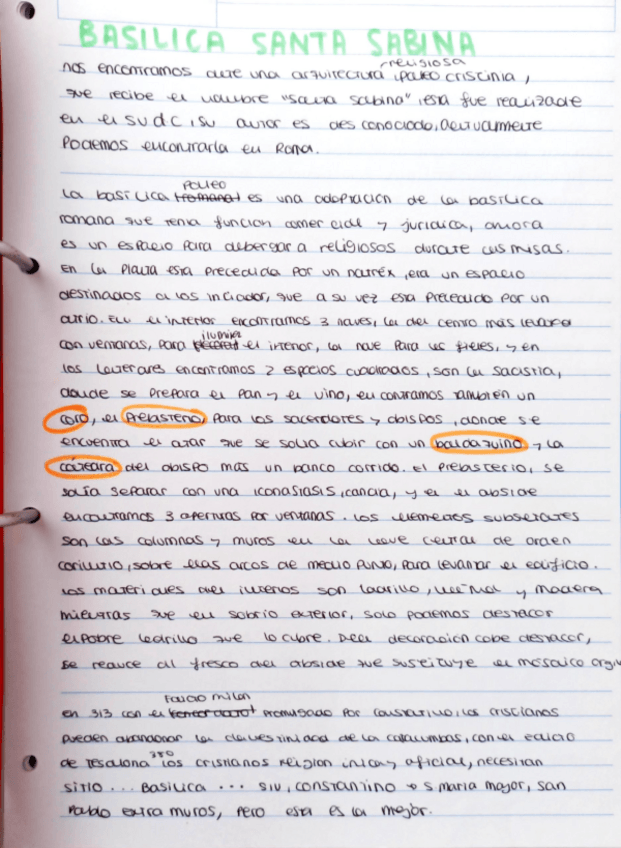 BASILICA SANTA SABINA
religiosa
nos encontramos ante una arquitectura paleo cristinia,
que recibe el nombre "santa sabina", esta fue realizade
en el S V d C, su autor es desconocido. Actualmente
Podemos encontrarla en Roma.
Paleo
La basilica romana es una adoptacion de la basilica
romana que tenia funcion comercial y juridica, ahora
es un espacio para albergar a religiosos durate las misas.
En la Planta esta precedida por un nartéx, era un espacio
destinados a los iniciador, que a su vez esta precedido por un
atrio. En el interior encontramos 3 naves, la del centro más
con vemanas, para el interior, la nave para los fieles, y en
ilumina
los laterares encontramos 2 espacios cuadrados, son la sacristia,
donde se prepara el pan y el vino, encontramos también un
coro, el Prebisterio, para los sacerdotes y obispos, donde se
encuentra el altar que se solia cubir con un baldaquino y la
cátedra del obispo más un banco corrido. El prebisterio, se
solía separar con una iconastasis, cancia, y en el abside
encontramos 3 aperturas por ventanas. Los elementos
son las columnas y muros en la nave central de orden
corintio, sobre ellas arcos de medio punto, para levantar el edificio.
Los materiales del interios son ladrillo, y madera
mientras que en sobrio exterior, solo podemos destacar
el pobre ladrillo que lo cubre. Decoración cabe destacar,
se reduce al fresco del abside que sustituye el mosaico
Edicto milan
en 313 con el promulgado por Constantino, los cristianos
pueden abandonar la clandestinidad de la catacumbas, con el edicto
de tesalona 380 los cristianos religion inica y oficial, necesitan
sitio... Basilica ... S IV, constantino S maria mayor, san
Pablo extra muros, pero esta es la mejor.